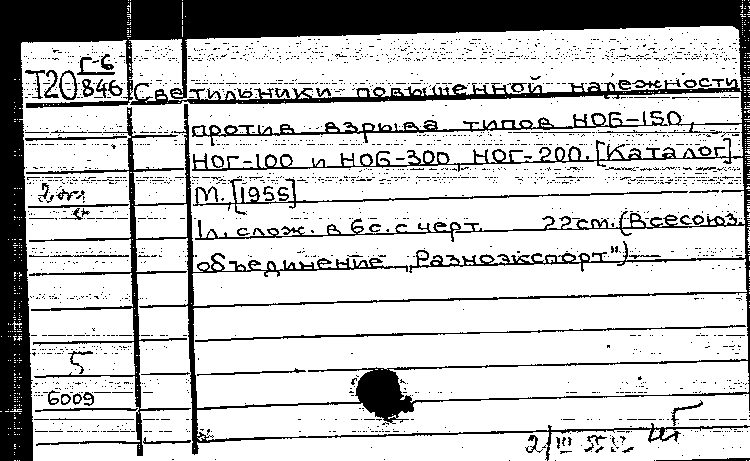 Г-6
Т20 846 Светильники повышенной надежности
против взрыва типов НОБ-150,
НОГ-100 и НОБ-300, НОГ-200. [Каталог]
М., [1955]
1л. слож. в 6с. с черт. 22см. (Всесоюз.
объединение „Разноэкспорт").
5
6009
2/III 55